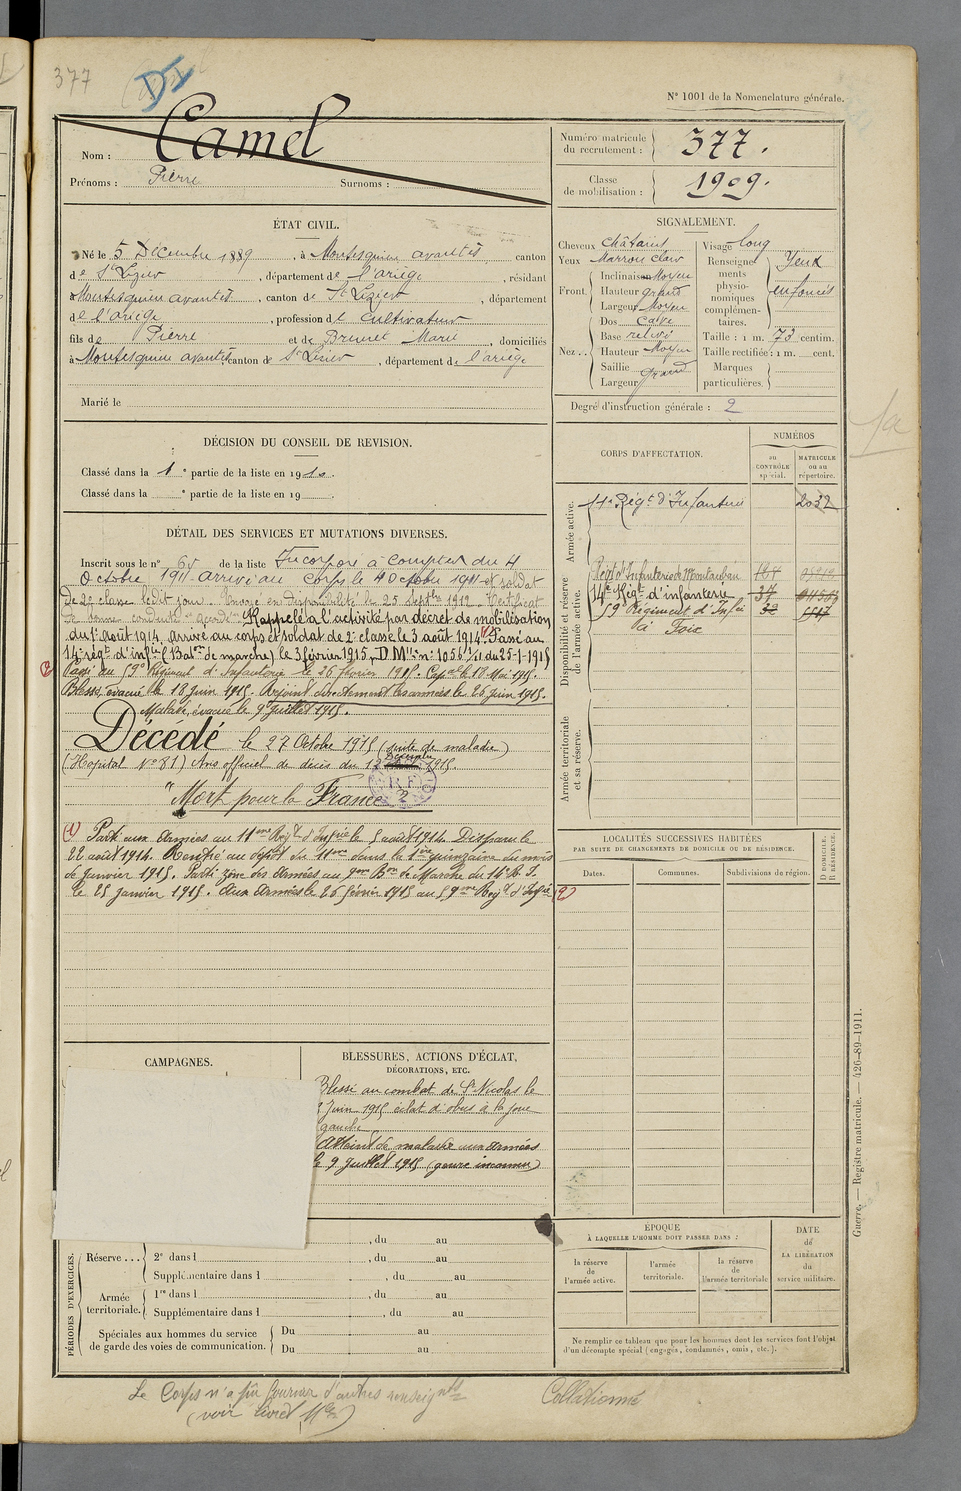 377
DI
N° 1001 de la Nomenclature générale.
Nom : Camel
Prénoms : Pierre Surnoms :
Numéro matricule du recrutement : 377.
Classe de mobilisation : 1909.
ÉTAT CIVIL.
Né le 5 Décembre 1889, à Montesquieu avantès canton
de St Lizier, département de l'ariège, résidant
à Montesquieu avantès, canton de St Lizier, département
de l'ariège, profession de cultivateur
fils de Pierre et de Brunet Marie, domiciliés
à Montesquieu avantès canton de St Lizier, département de l'ariège
Marié le
SIGNALEMENT.
Cheveux châtains
Yeux Marrons clair
Front. Inclinaison Moyen
Hauteur grand
Largeur Moyen
Nez.. Dos cave
Base relevé
Hauteur Moyen
Saillie
Largeur grand
Visage long
Renseignements physionomiques complémentaires. Yeux enfoncés
Taille : 1 m. 73 centim.
Taille rectifiée : 1 m. cent.
Marques particulières.
Degré d'instruction générale : 2
DÉCISION DU CONSEIL DE REVISION.
Classé dans la 1e partie de la liste en 1910.
Classé dans la e partie de la liste en 19
CORPS D'AFFECTATION.
NUMÉROS
au CONTRÔLE spécial.
MATRICULE ou au répertoire.
Armée active.
11e Régt d'Infanterie 2032
Disponibilité et réserve de l'armée active.
Régt d'Infanterie de Montauban
14e Régt d'infanterie
59e Régiment d'Infie
à Foix
Armée territoriale et sa réserve.
DÉTAIL DES SERVICES ET MUTATIONS DIVERSES.
Inscrit sous le n° 65 de la liste Incorporé à compter du 4
Octobre 1911 arrivé au corps le 4 Octobre 1911 et soldat
de 2e classe ledit jour. Envoyé en disponibilité le 25 septbre 1912. Certificat
de bonne conduite "accordé" Rappelé à l'activité par décret de mobilisation
du 1er août 1914, arrivé au corps et soldat de 2e classe le 3 août 1914 (1) Passé au
14e régt d'infie (Balon de marche) le 3 février 1915, D. Mlle n° 1056 1/11 du 25-1-1915
(2) Passé au 59e Régiment d'Infanterie le 26 février 1915. Caporal le 18 Mai 1915.
Blessé, évacué le 18 juin 1915. Rejoint directement les armées le 26 juin 1915.
Malade, évacué le 9 Juillet 1915.
Décédé le 27 Octobre 1915 (suite de maladie)
(Hôpital N° 81) Avis officiel de décès du 12 Décembre 1915.
"Mort pour la France"
(1) Parti aux Armées au 11ème Régt d'Infie le 5 août 1914. Disparu le
22 août 1914. Rentré au dépôt du 11ème dans la 1ère quinzaine du mois
de Janvier 1915. Parti zône des Armées au 9ème Bon de Marche du 14e R. I.
le 25 janvier 1915. Aux Armées le 26 février 1915 au 59ème Régt d'Infie (2)
LOCALITÉS SUCCESSIVES HABITÉES
PAR SUITE DE CHANGEMENTS DE DOMICILE OU DE RÉSIDENCE.
Dates. Communes. Subdivisions de région.
D DOMICILE. R RÉSIDENCE.
CAMPAGNES.
BLESSURES, ACTIONS D'ÉCLAT, DÉCORATIONS, ETC.
Blessé au combat de St Nicolas le
Juin 1915 éclat d'obus à la joue
gauche
Atteint de maladie aux armées
le 9 Juillet 1915 (genre inconnu)
PÉRIODES D'EXERCICES.
, du au
Réserve... 2e dans l , du au
Supplémentaire dans l , du au
Armée territoriale. 1re dans l , du au
Supplémentaire dans l , du au
Spéciales aux hommes du service de garde des voies de communication. Du au
Du au
ÉPOQUE
À LAQUELLE L'HOMME DOIT PASSER DANS :
la réserve de l'armée active.
l'armée territoriale.
la réserve de l'armée territoriale
DATE de LA LIBÉRATION du service militaire.
Ne remplir ce tableau que pour les hommes dont les services font l'objet
d'un décompte spécial (engagés, condamnés, omis, etc.).
Guerre. — Registre matricule. — 426-89-1911.
Le Corps n'a pu fournir d'autres renseignts
(voir livret Mle)
Collationné